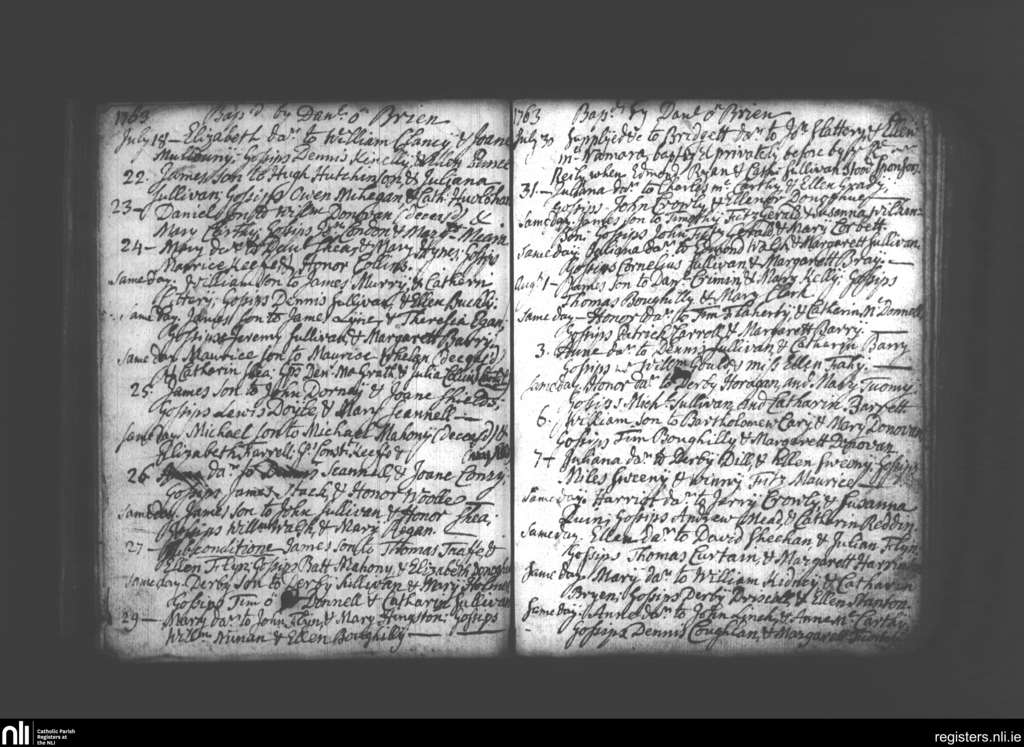 1763 Bapsd by Danl. o Brien
July 18 - Elizabeth dar. to William Clancy & Joane
Gossips Dennis Kinelly &
22. James Son to Hugh Hutchinson & Juliana
Sullivan; Gossips Owen Mihegan & Cath:
23 - Daniel Son to Willm Donovan (deceasd) &
Mary Carthy; Gosips Jon. Condon & Margtt.
24 - Mary dar. to Danl. Shea & Mary Hynes, Gossips
Maurice Keefe & Honor Collins.
Same day William son to James Murry, & Catherin
Gossips Dennis Sullivan, & Ellen Buckly.
Same day. James son to James Lyne & Theresia Egan.
Gossips Jeremy Sullivan, & Margarett Barry
Same day Maurice son to Maurice Whelan (deceasd)
& Catherin Shea: Gps Den: McGrath & Julia
25. James Son to John Dornay & Joane Shields,
Gossips Lewis Doyle & Mary Scannell
Same day. Michael son to Michael Mahony (deceasd) &
Elizabeth Farrell. Keefe &
26 dar. to Scannell, & Joane Conry,
Gossips James & Honor Woolle
Same day. James Son to John Sullivan & Honor Shea,
Gossips Willm Walsh, & Mary Hogan.
27 - Subconditione James Son to Thomas Taaffe &
Ellen Flyn. Gossips Batt Mahony, & Elizabeth Donoghue
Same day. Derby Son to Derby Sullivan & Mary Holmes
Gossips Tim o Donnell & Catharin Sullivan
29 - Mary dar. to John Flyn, & Mary Hingston: Gossips
Willm. Nunan & Ellen Boughilly
1763 Bapsd. by Danl o Brien
July 30 Supplied &c to Bridgett dar. to Jon. Slattery & Ellen
McNamara, baptiz'd privately before by
Reily when Edmond Ryan & Cath: Sullivan Stood Sponsors
31. - Juliana dar. to Charles McCarthy & Ellen Grady.
Gossips John Crowly & Ellenor Donoghue
Same day. James son to Timothy FitzGerald & Susanna Wilkin=
son. Gossips John Fitz Gerald & Mary Corbett
Same day Juliana dar. to Edmond Walsh & Margarett Sullivan
Gossips Cornelius Sullivan & Margarett Bray.
Augt 1 - James Son to Danl. Crimin & Mary Kelly. Gossips
Thomas Boughilly & Mary Clark
Same day - Honor dar. to Tim Flaherty, & Catherin McDonnell
Gossips Patrick Carroll & Margarett Barry.
3. Anne dar. to Dennis Sullivan & Catherin Barry
Gossips Willm Gould & miss Ellen Fahy.
Same day. Honor dar. to Derby Horagan and Mary Twomy
Gossips Michl. Sullivan And Catharin Barrett
6. William Son to Bartholomew Cary & Mary Donovan
Gossips Tim Boughilly & Margarett Donovan
7 - Juliana dar. to Derby Dill, & Ellen Sweeny. Gossips
Miles Sweeny & Winny Fitz Maurice
Same day. Harriot dar. to Jerry Crowly & Susanna
Quin; Gossips Andrew Mead & Catherin Reddin.
Same day. Ellen dar. to David Sheehan & Julian Flyn
Gossips Thomas Curtain, & Margarett
Same day. Mary dar. to William Kidney & Catharin
Bryen, Gossips Derby Driscoll, & Ellen Stanton.
Same day. Anne dar. to John Lynch, & Anne McCartay
Gossips Dennis Coughlan, & Margarett
nli
Catholic Parish
Registers at
the NLI
registers.nli.ie